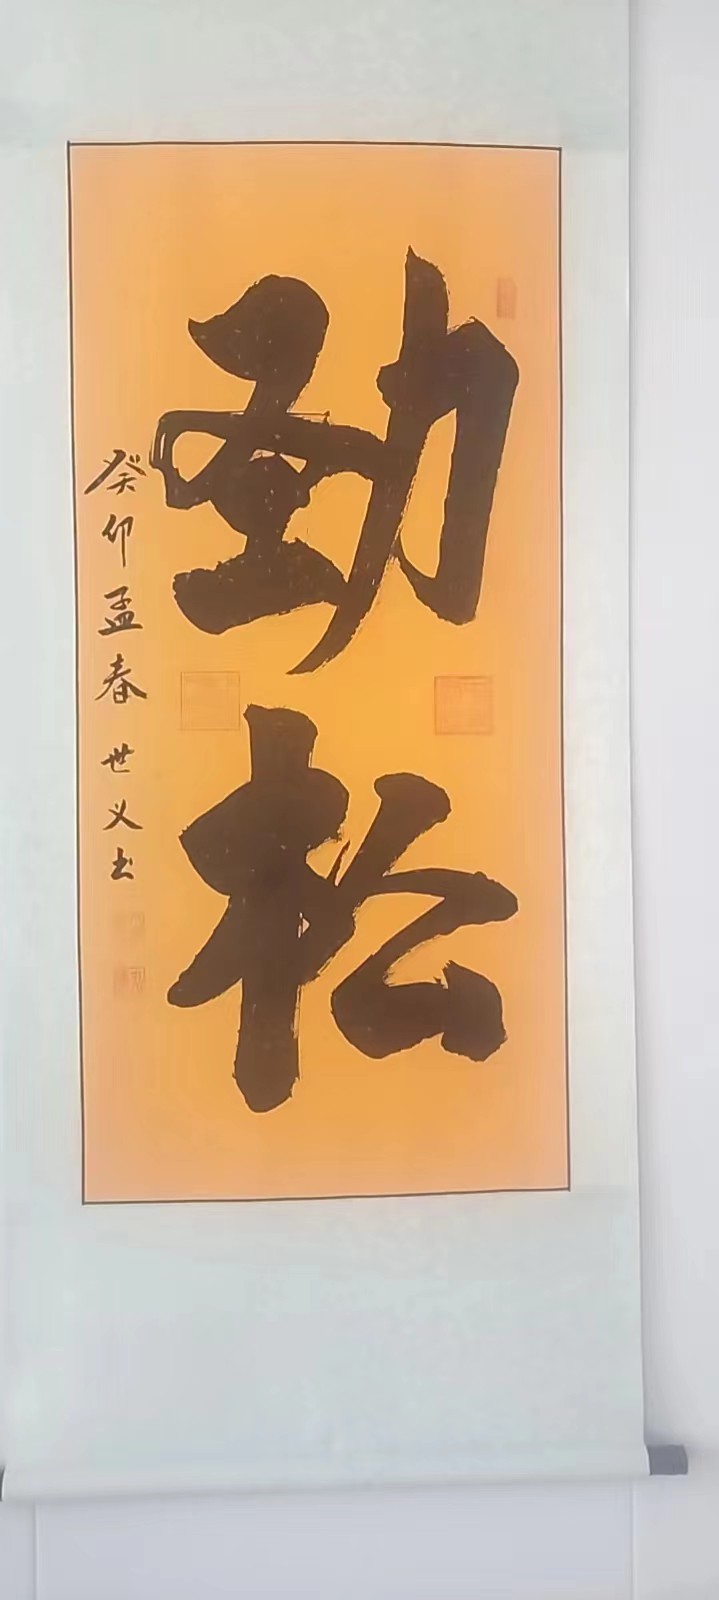 劲松
癸卯孟春 世义书